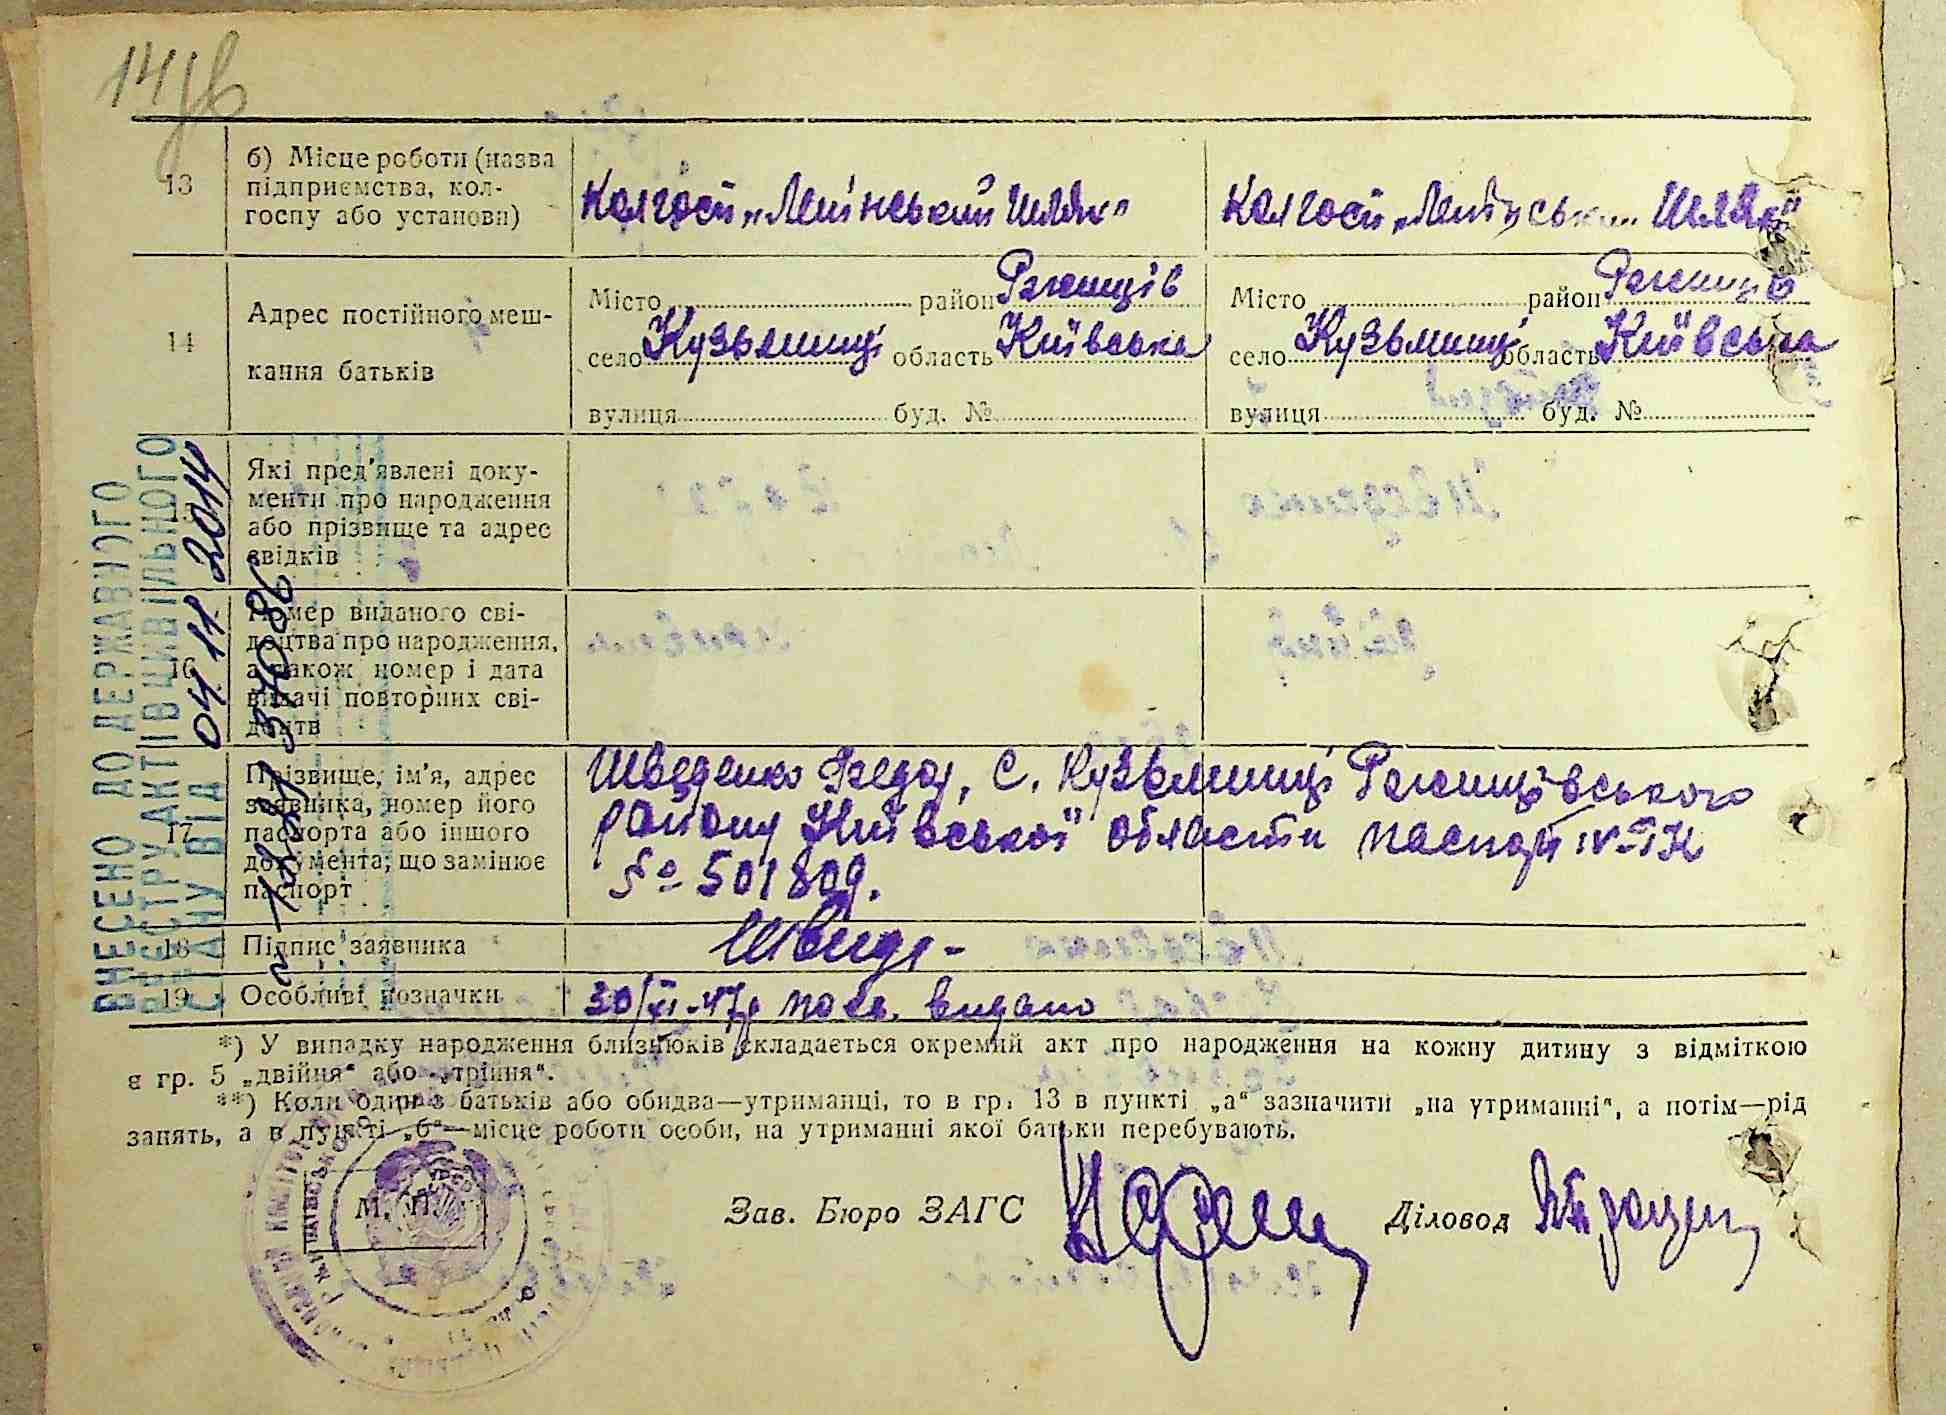 13
б) Місце роботи (назва
підприємства, кол-
госпу або установи)
Колгосп „Ленінський Шлях"
Колгосп „Ленінський Шлях"
14
Адрес постійного меш-
кання батьків
Місто район Ржищів
село Кузьминці область Київська
вулиця буд. №
Місто район Ржищів
село Кузьминці область Київська
вулиця буд. №
15
Які пред'явлені доку-
менти про народження
або прізвище та адрес
свідків
16
Номер виданого сві-
доцтва про народження,
а також номер і дата
видачі повторних сві-
доцтв
17
Прізвище, ім'я, адрес
заявника, номер його
паспорта або іншого
документа, що замінює
паспорт
Шведенко Федор, с. Кузьминці Ржищівського
району Київської области паспорт
№ 501809.
18
Підпис заявника
19
Особливі позначки
30/XI-47р видано
ВНЕСЕНО ДО ДЕРЖАВНОГО
РЕЄСТРУ АКТІВ ЦИВІЛЬНОГО
СТАНУ ВІД 04 11 2014
*) У випадку народження близнюків складається окремий акт про народження на кожну дитину з відміткою
в гр. 5 „двійня" або „трійня".
**) Коли один з батьків або обидва—утриманці, то в гр. 13 в пункті „а" зазначити „на утриманні", а потім—рід
занять, а в пункті „б"—місце роботи особи, на утриманні якої батьки перебувають.
М. П.
Зав. Бюро ЗАГС
Діловод